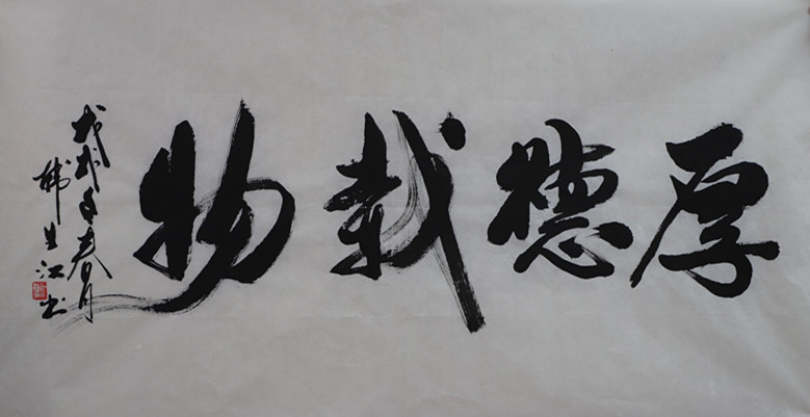 厚德載物
戊戌年春月
韩生江书